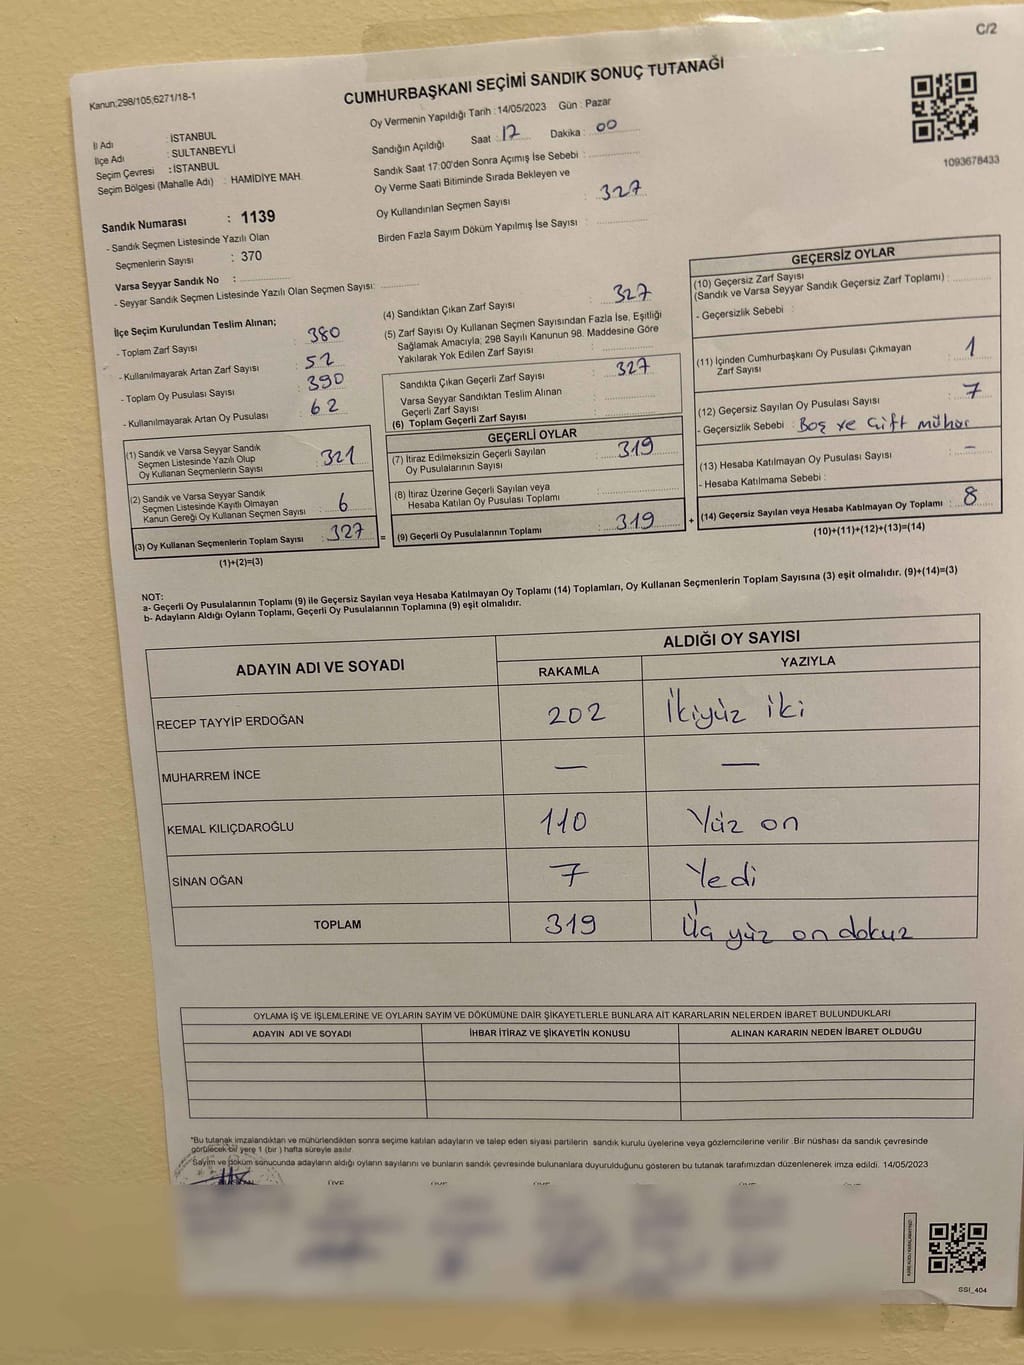 C/2
Kanun;298/105;6271/18-1
CUMHURBAŞKANI SEÇİMİ SANDIK SONUÇ TUTANAĞI
Oy Vermenin Yapıldığı Tarih : 14/05/2023 Gün : Pazar
İl Adı : İSTANBUL
İlçe Adı : SULTANBEYLİ
Seçim Çevresi : İSTANBUL
Seçim Bölgesi (Mahalle Adı) : HAMİDİYE MAH.
Sandığın Açıldığı Saat : 17 Dakika : 00
Sandık Saat 17:00'den Sonra Açımış İse Sebebi :
Oy Verme Saati Bitiminde Sırada Bekleyen ve
Oy Kullandırılan Seçmen Sayısı : 327
Birden Fazla Sayım Döküm Yapılmış İse Sayısı :
1093678433
Sandık Numarası : 1139
- Sandık Seçmen Listesinde Yazılı Olan
Seçmenlerin Sayısı : 370
Varsa Seyyar Sandık No :
- Seyyar Sandık Seçmen Listesinde Yazılı Olan Seçmen Sayısı:
İlçe Seçim Kurulundan Teslim Alınan;
- Toplam Zarf Sayısı : 380
- Kullanılmayarak Artan Zarf Sayısı : 52
- Toplam Oy Pusulası Sayısı : 390
- Kullanılmayarak Artan Oy Pusulası : 62
(1) Sandık ve Varsa Seyyar Sandık
Seçmen Listesinde Yazılı Olup
Oy Kullanan Seçmenlerin Sayısı : 321
(2) Sandık ve Varsa Seyyar Sandık
Seçmen Listesinde Kayıtlı Olmayan
Kanun Gereği Oy Kullanan Seçmen Sayısı : 6
(3) Oy Kullanan Seçmenlerin Toplam Sayısı : 327
(1)+(2)=(3)
(4) Sandıktan Çıkan Zarf Sayısı : 327
(5) Zarf Sayısı Oy Kullanan Seçmen Sayısından Fazla İse, Eşitliği
Sağlamak Amacıyla; 298 Sayılı Kanunun 98. Maddesine Göre
Yakılarak Yok Edilen Zarf Sayısı :
Sandıkta Çıkan Geçerli Zarf Sayısı : 327
Varsa Seyyar Sandıktan Teslim Alınan
Geçerli Zarf Sayısı :
(6) Toplam Geçerli Zarf Sayısı :
GEÇERLİ OYLAR
(7) İtiraz Edilmeksizin Geçerli Sayılan
Oy Pusulalarının Sayısı : 319
(8) İtiraz Üzerine Geçerli Sayılan veya
Hesaba Katılan Oy Pusulası Toplamı :
= (9) Geçerli Oy Pusulalarının Toplamı : 319 +
GEÇERSİZ OYLAR
(10) Geçersiz Zarf Sayısı
(Sandık ve Varsa Seyyar Sandık Geçersiz Zarf Toplamı) :
- Geçersizlik Sebebi :
(11) İçinden Cumhurbaşkanı Oy Pusulası Çıkmayan
Zarf Sayısı : 1
(12) Geçersiz Sayılan Oy Pusulası Sayısı : 7
- Geçersizlik Sebebi : Boş ve Çift mühür
(13) Hesaba Katılmayan Oy Pusulası Sayısı : -
- Hesaba Katılmama Sebebi :
(14) Geçersiz Sayılan veya Hesaba Katılmayan Oy Toplamı : 8
(10)+(11)+(12)+(13)=(14)
NOT:
a- Geçerli Oy Pusulalarının Toplamı (9) ile Geçersiz Sayılan veya Hesaba Katılmayan Oy Toplamı (14) Toplamları, Oy Kullanan Seçmenlerin Toplam Sayısına (3) eşit olmalıdır. (9)+(14)=(3)
b- Adayların Aldığı Oyların Toplamı, Geçerli Oy Pusulalarının Toplamına (9) eşit olmalıdır.
ADAYIN ADI VE SOYADI
ALDIĞI OY SAYISI
RAKAMLA YAZIYLA
RECEP TAYYİP ERDOĞAN 202 İkiyüz iki
MUHARREM İNCE — —
KEMAL KILIÇDAROĞLU 110 Yüz on
SİNAN OĞAN 7 Yedi
TOPLAM 319 Üç yüz on dokuz
OYLAMA İŞ VE İŞLEMLERİNE VE OYLARIN SAYIM VE DÖKÜMÜNE DAİR ŞİKAYETLERLE BUNLARA AİT KARARLARIN NELERDEN İBARET BULUNDUKLARI
ADAYIN ADI VE SOYADI İHBAR İTİRAZ VE ŞİKAYETİN KONUSU ALINAN KARARIN NEDEN İBARET OLDUĞU
*Bu tutanak imzalandıktan ve mühürlendikten sonra seçime katılan adayların ve talep eden siyasi partilerin sandık kurulu üyelerine veya gözlemcilerine verilir .Bir nüshası da sandık çevresinde
görülecek bir yere 1 (bir ) hafta süreyle asılır.
*Sayım ve döküm sonucunda adayların aldığı oyların sayılarını ve bunların sandık çevresinde bulunanlara duyurulduğunu gösteren bu tutanak tarafımızdan düzenlenerek imza edildi. 14/05/2023
ÜYE ÜYE ÜYE ÜYE ÜYE
SSI_404